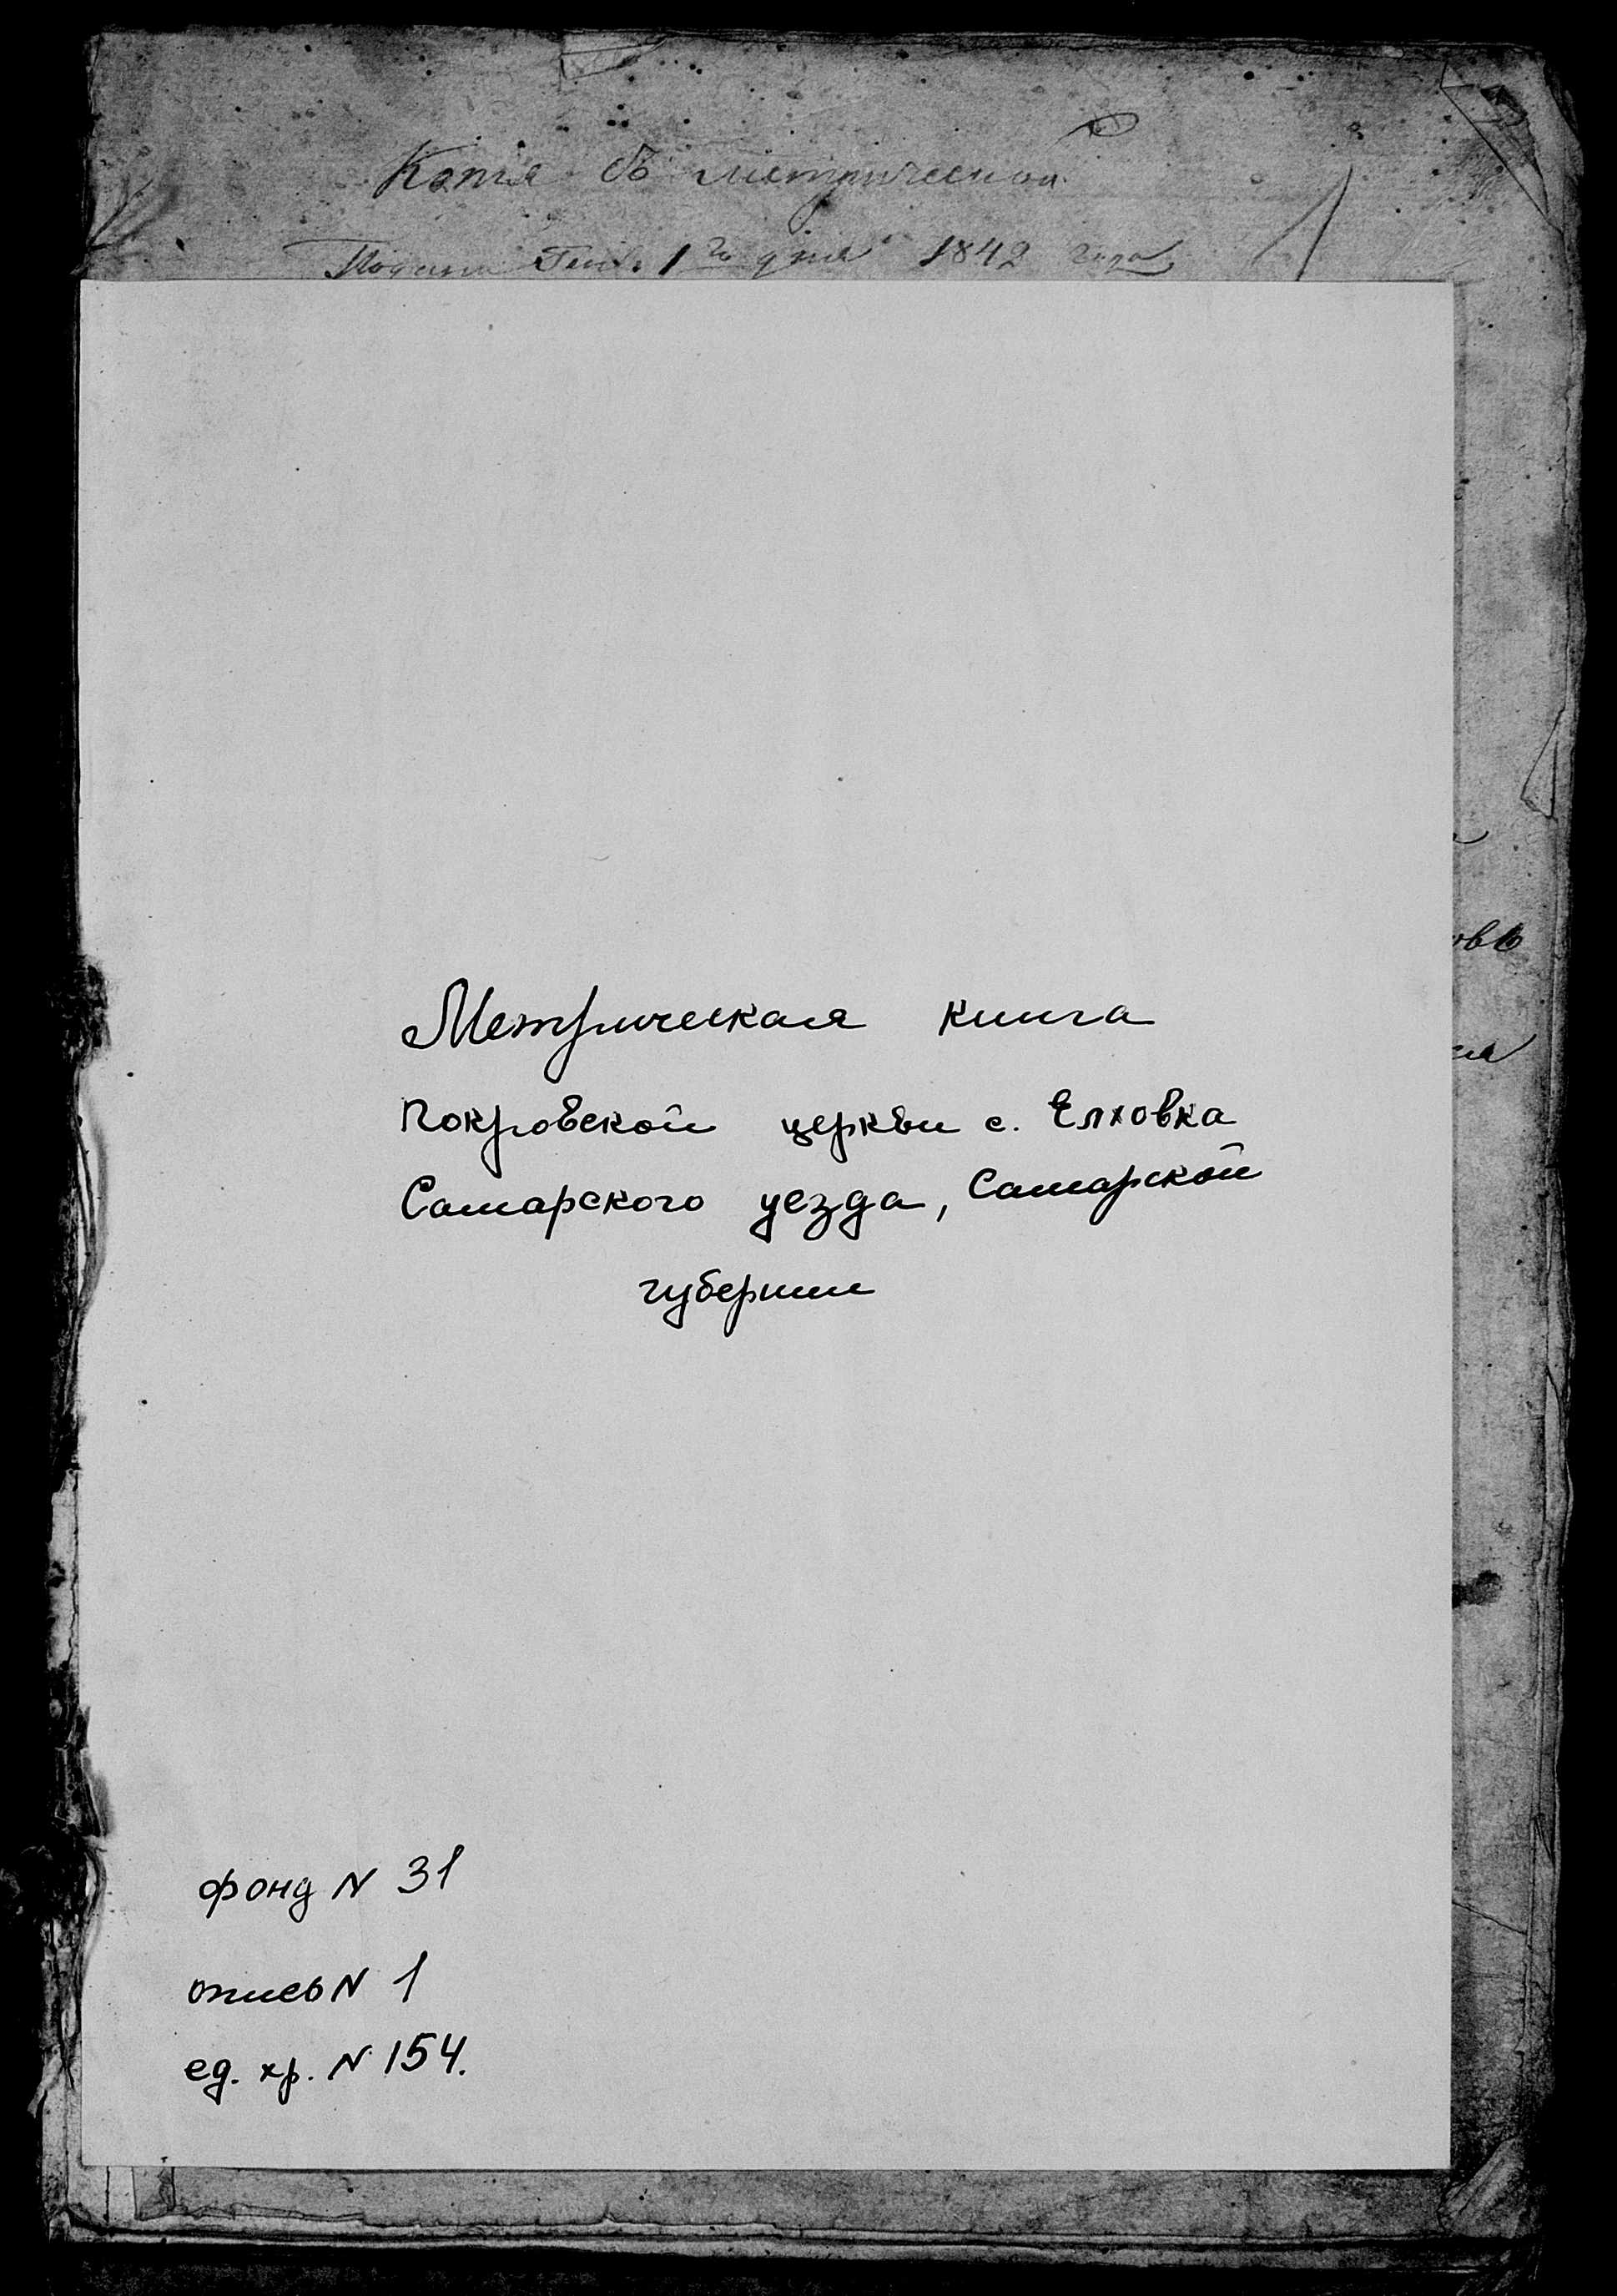 Копія съ метрической
Генв. 1го дня 1842 года
овь
Метрическая книга
Покровской церкви с. Елховка
Самарского уезда, Самарской
губернии
фонд N 31
опись N 1
ед. хр. N 154.